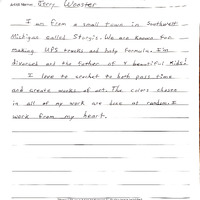 Artist Name: Jerry Wonster
I am from a small town in Southwest
Michigan called Sturgis. We are known for
making UPS trucks and baby formula. I'm
divorced and the father of 4 beautiful kids!
I love to crochet to both pass time
and create works of art. The colors chosen
in all of my work are done at random. I
work from my heart.